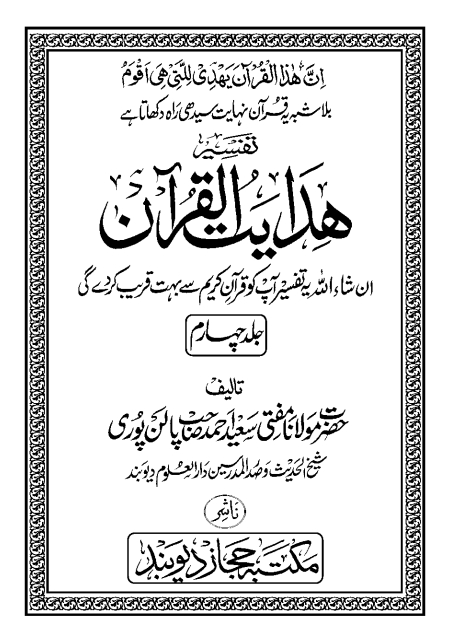 اِنَّ هٰذَا الْقُرْآنَ يَهْدِيْ لِلَّتِيْ هِيَ اَقْوَمُ
بلاشبہ یہ قرآن نہایت سیدھی راہ دکھاتا ہے
تفسیر
ہدایت القرآن
ان شاء اللہ یہ تفسیر آپ کو قرآنِ کریم سے بہت قریب کردے گی
جلد چہارم
تالیف
حضرت مولانا مفتی سعید احمد صاحب پالن پوری
شیخ الحدیث و صدر المدرسین دارالعلوم دیوبند
ناشر
مکتبہ حجاز دیوبند